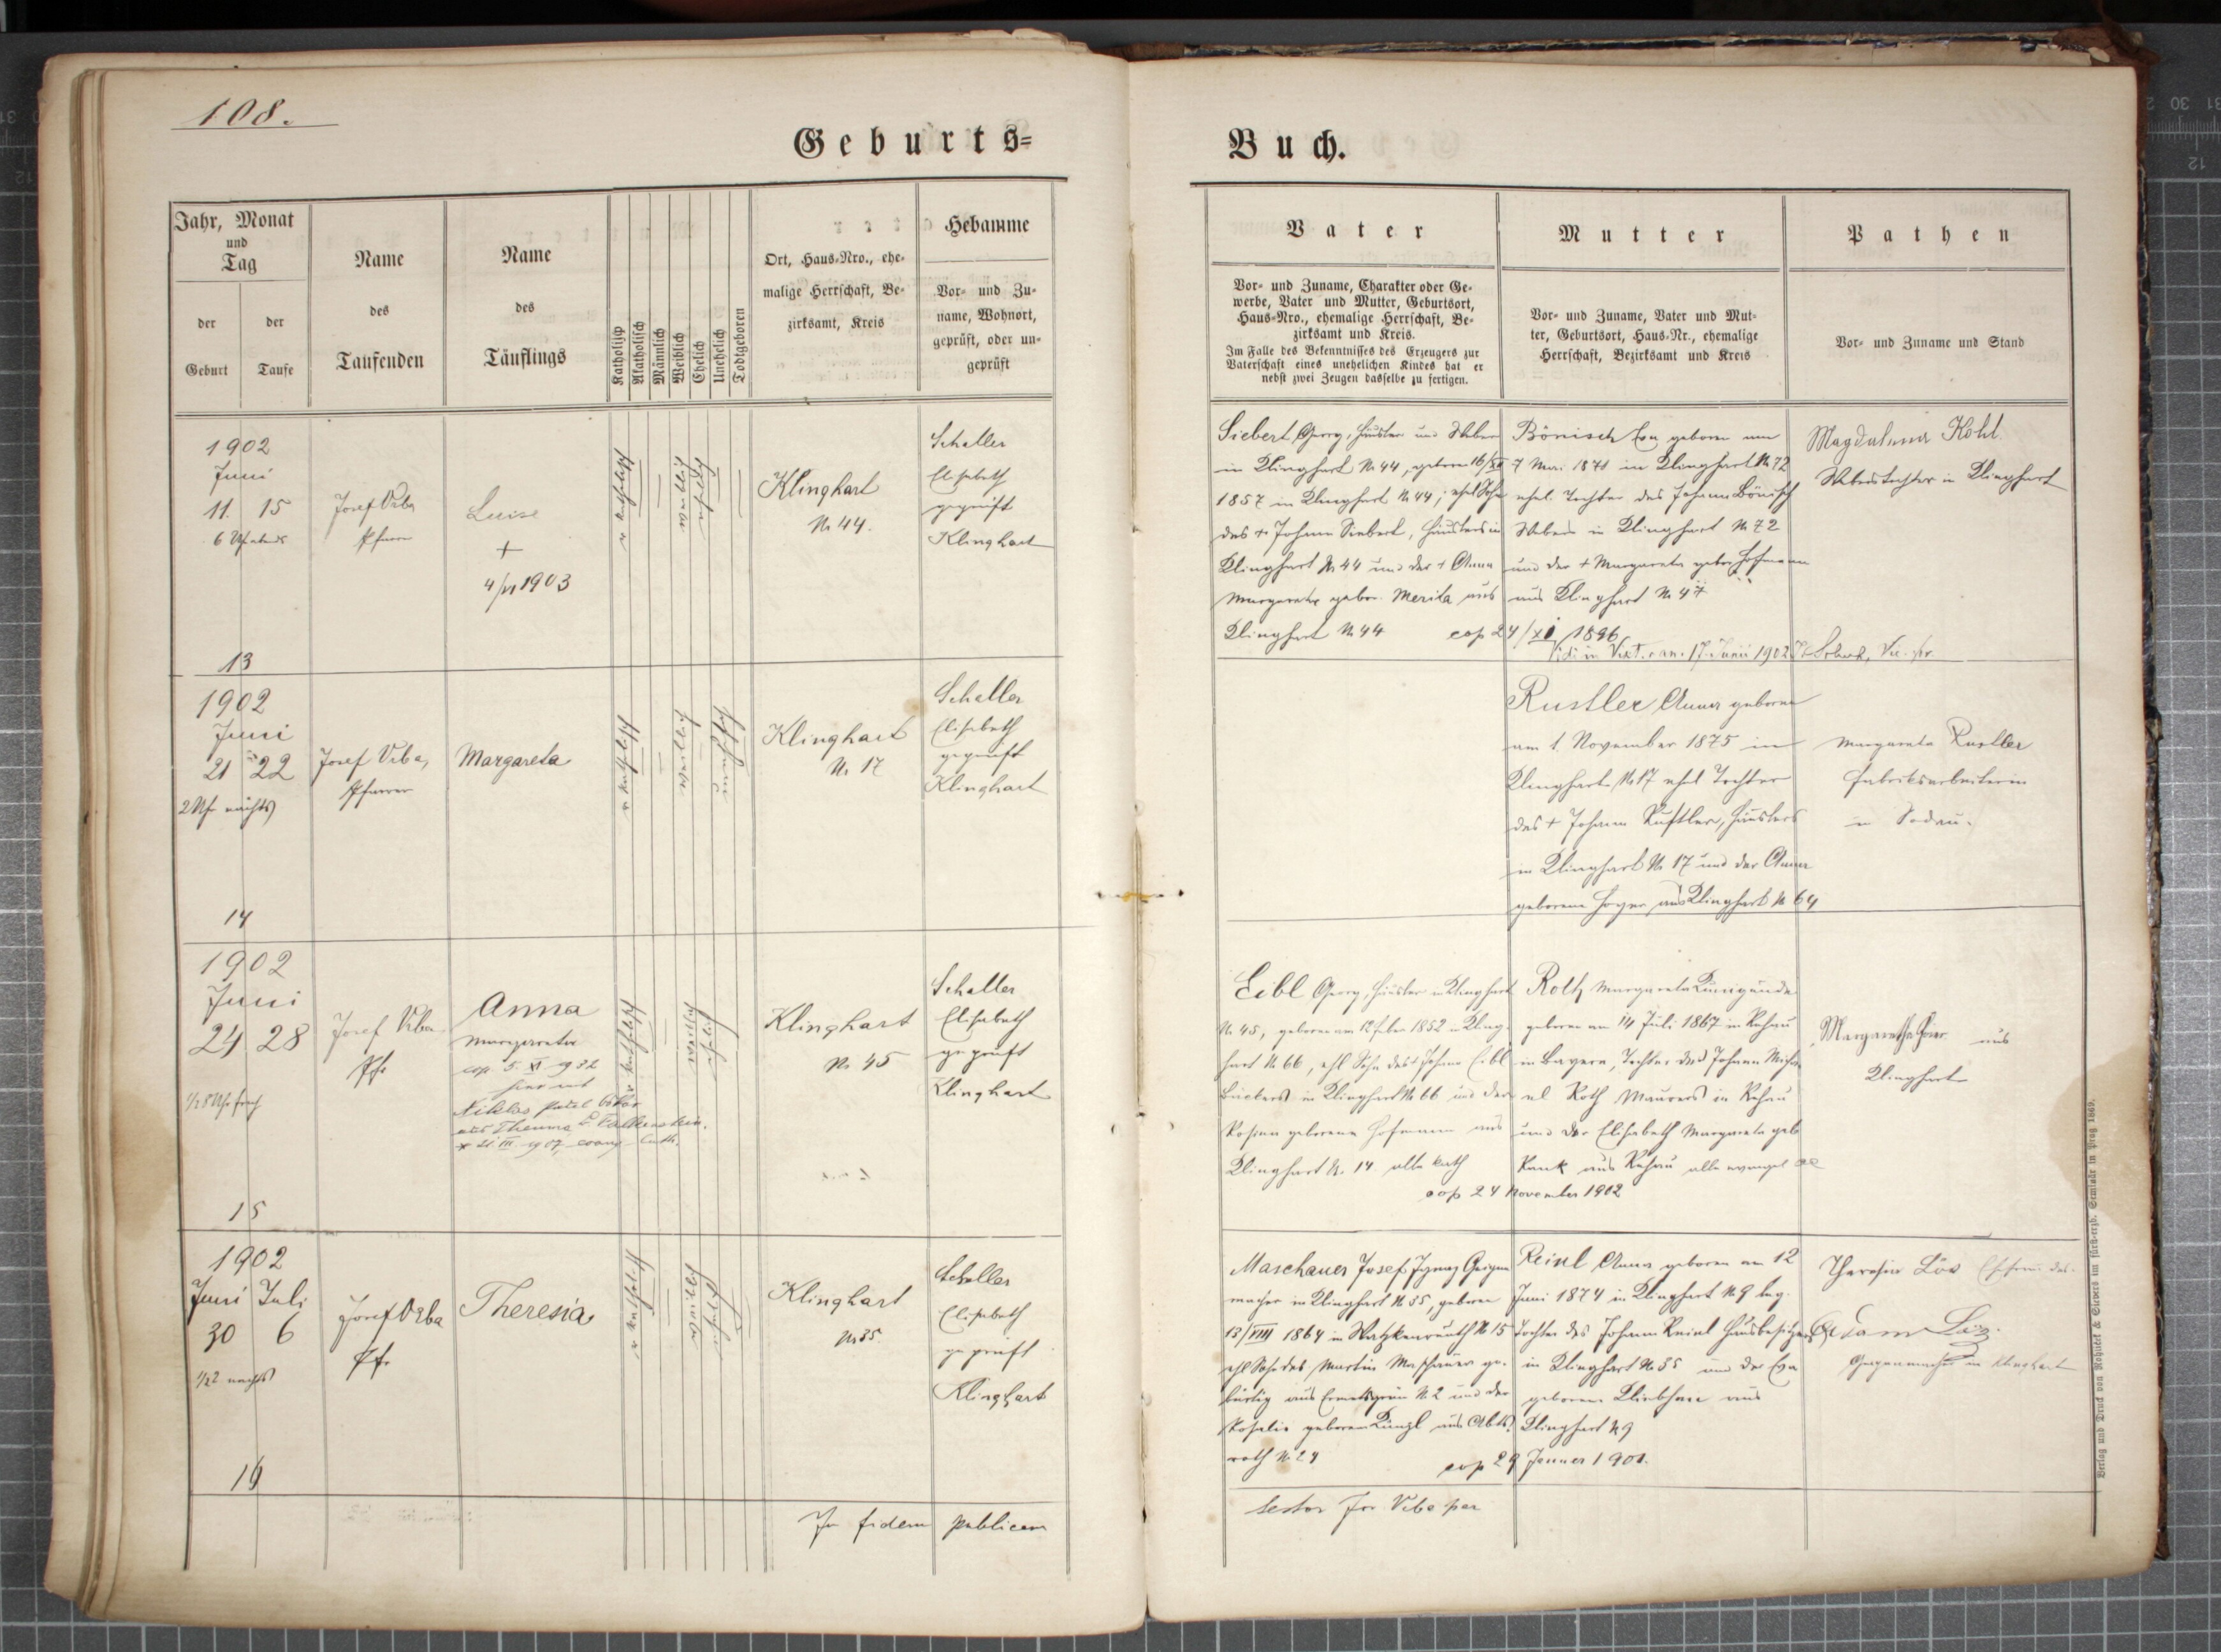 108.
Geburts=
Buch.
Jahr, Monat
und
Tag
der
Geburt
der
Taufe
Name
des
Taufenden
Name
des
Täuflings
Katholisch
Akatholisch
Männlich
Weiblich
Ehelich
Unehelich
Todtgeboren
Ort, Haus-Nro., ehe-
malige Herrschaft, Be-
zirksamt, Kreis
Hebamme
Vor- und Zu-
name, Wohnort,
geprüft, oder un-
geprüft
Vater
Vor- und Zuname, Charakter oder Ge-
werbe, Vater und Mutter, Geburtsort,
Haus-Nro., ehemalige Herrschaft, Be-
zirksamt und Kreis.
Im Falle des Bekenntnisses des Erzeugers zur
Vaterschaft eines unehelichen Kindes hat er
nebst zwei Zeugen dasselbe zu fertigen.
Mutter
Vor- und Zuname, Vater und Mut-
ter, Geburtsort, Haus-Nr., ehemalige
Herrschaft, Bezirksamt und Kreis
Pathen
Vor- und Zuname und Stand
1902
Juni
11 15
6 Uhr abends
13
Josef Vrba
Pfarrer
Luise
+
4/VI 1903
Klinghart
N. 44.
Schaller
Elisabeth
geprüft
Klinghart
Siebert Georg, Häusler und Weber
in Klinghart N 44, geboren 16/XII
1857 in Klinghart N 44; ehel Sohn
des + Johann Siebert, Häuslers in
Klinghart N 44 und der + Anna
Margareta gebor. Merita aus
Klinghart N 44 cop 24/XI 1896
Bönisch Eva geboren am
7 Mai 1871 in Klinghart N 72
ehel. Tochter des Johann Bönisch
Webers in Klinghart N 72
und der + Margareta gebor Hofmann
aus Klinghart N 47
17. Junii 1902
Magdalena Kohl
Weberstochter in Klinghart
1902
Juni
21 22
2 Uhr nachts
14
Josef Vrba,
Pfarrer
Margareta
Klinghart
N. 17
Schaller
Elisabeth
geprüft
Klinghart
Rustler Anna geboren
am 1 November 1875 in
Klinghart N 17 ehel Tochter
des + Johann Rustler, Häuslers
in Klinghart N 17 und der Anna
geborene Hoyer aus Klinghart N 64
Margareta Rustler
Fabriksarbeiterin
in Sodau.
1902
Juni
24 28
1/2 8 Uhr früh
15
Josef Vrba
Pf.
Anna
Margareta
cop 5. XI 1932
hier mit
Niklas
aus Theuma b Falkenstein,
* 21. III. 1907, evang. luth.
Klinghart
N. 45
Schaller
Elisabeth
geprüft
Klinghart
Eibl Georg, Häusler in Klinghart
N. 45, geboren am 12 feber 1852 in Kling-
hart N 66, ehl Sohn des + Johann Eibl
Bäckers in Klinghart N 66 und der
Rosina geborene Hofmann aus
Klinghart N. 14. alle kath
cop 24 November 1902
Roth Margareta Kunigunda
geboren am 14 Juli 1867 in Rehau
in Bayern, Tochter des Johann Micha-
el Roth Maurers in Rehau
und der Elisabeth Margareta geb
aus Rehau alle evangel
Margaretha
aus
Klinghart
1902
Juni Juli
30 6
1/2 2 nachts
16
Josef Vrba
Pf.
Theresia
Klinghart
N. 35.
Schaller
Elisabeth
geprüft
Klinghart
Maschauer Josef Ignaz Geigen
macher in Klinghart N 35, geboren
13/VIII 1864 in Watzkenreuth N 15
ehl Sohn des Martin Maschauer ge-
bürtig aus Ermesgrün N. 2 und der
Rosalia geborene Künzl aus Abts-
roth N. 24 cop 29 Jänner 1901.
Reinl Anna geboren am 12
Juni 1874 in Klinghart N 9 leg.
Tochter des Johann Reinl Hausbesitzers
in Klinghart N 35 und der Eva
geborene Kliebhan aus
Klinghart N 9
Theresia Löw Ehefrau des
Adam Löw
Geigenmacher in Klinghart
In fidem publicam
testor Jos Vrba par
Verlag und Druck von Rohliček & Sievers im fürst-erzb. Seminär in Prag 1869.